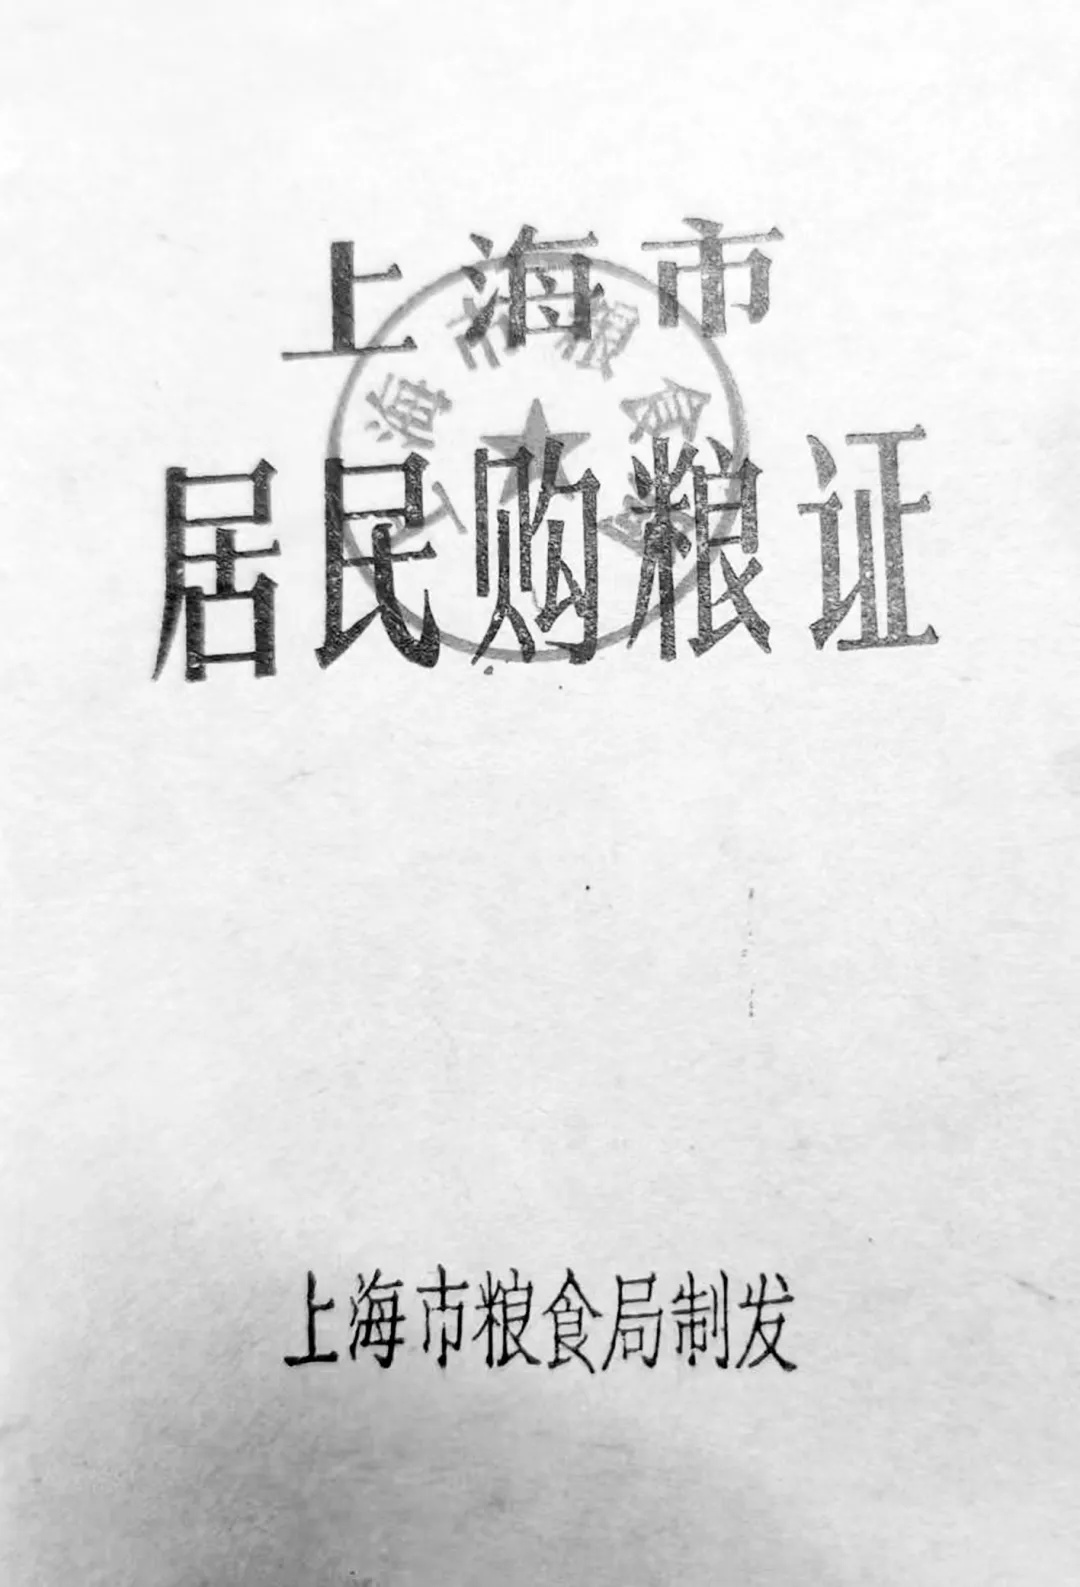 上海市
上海市粮食局
居民购粮证
上海市粮食局制发